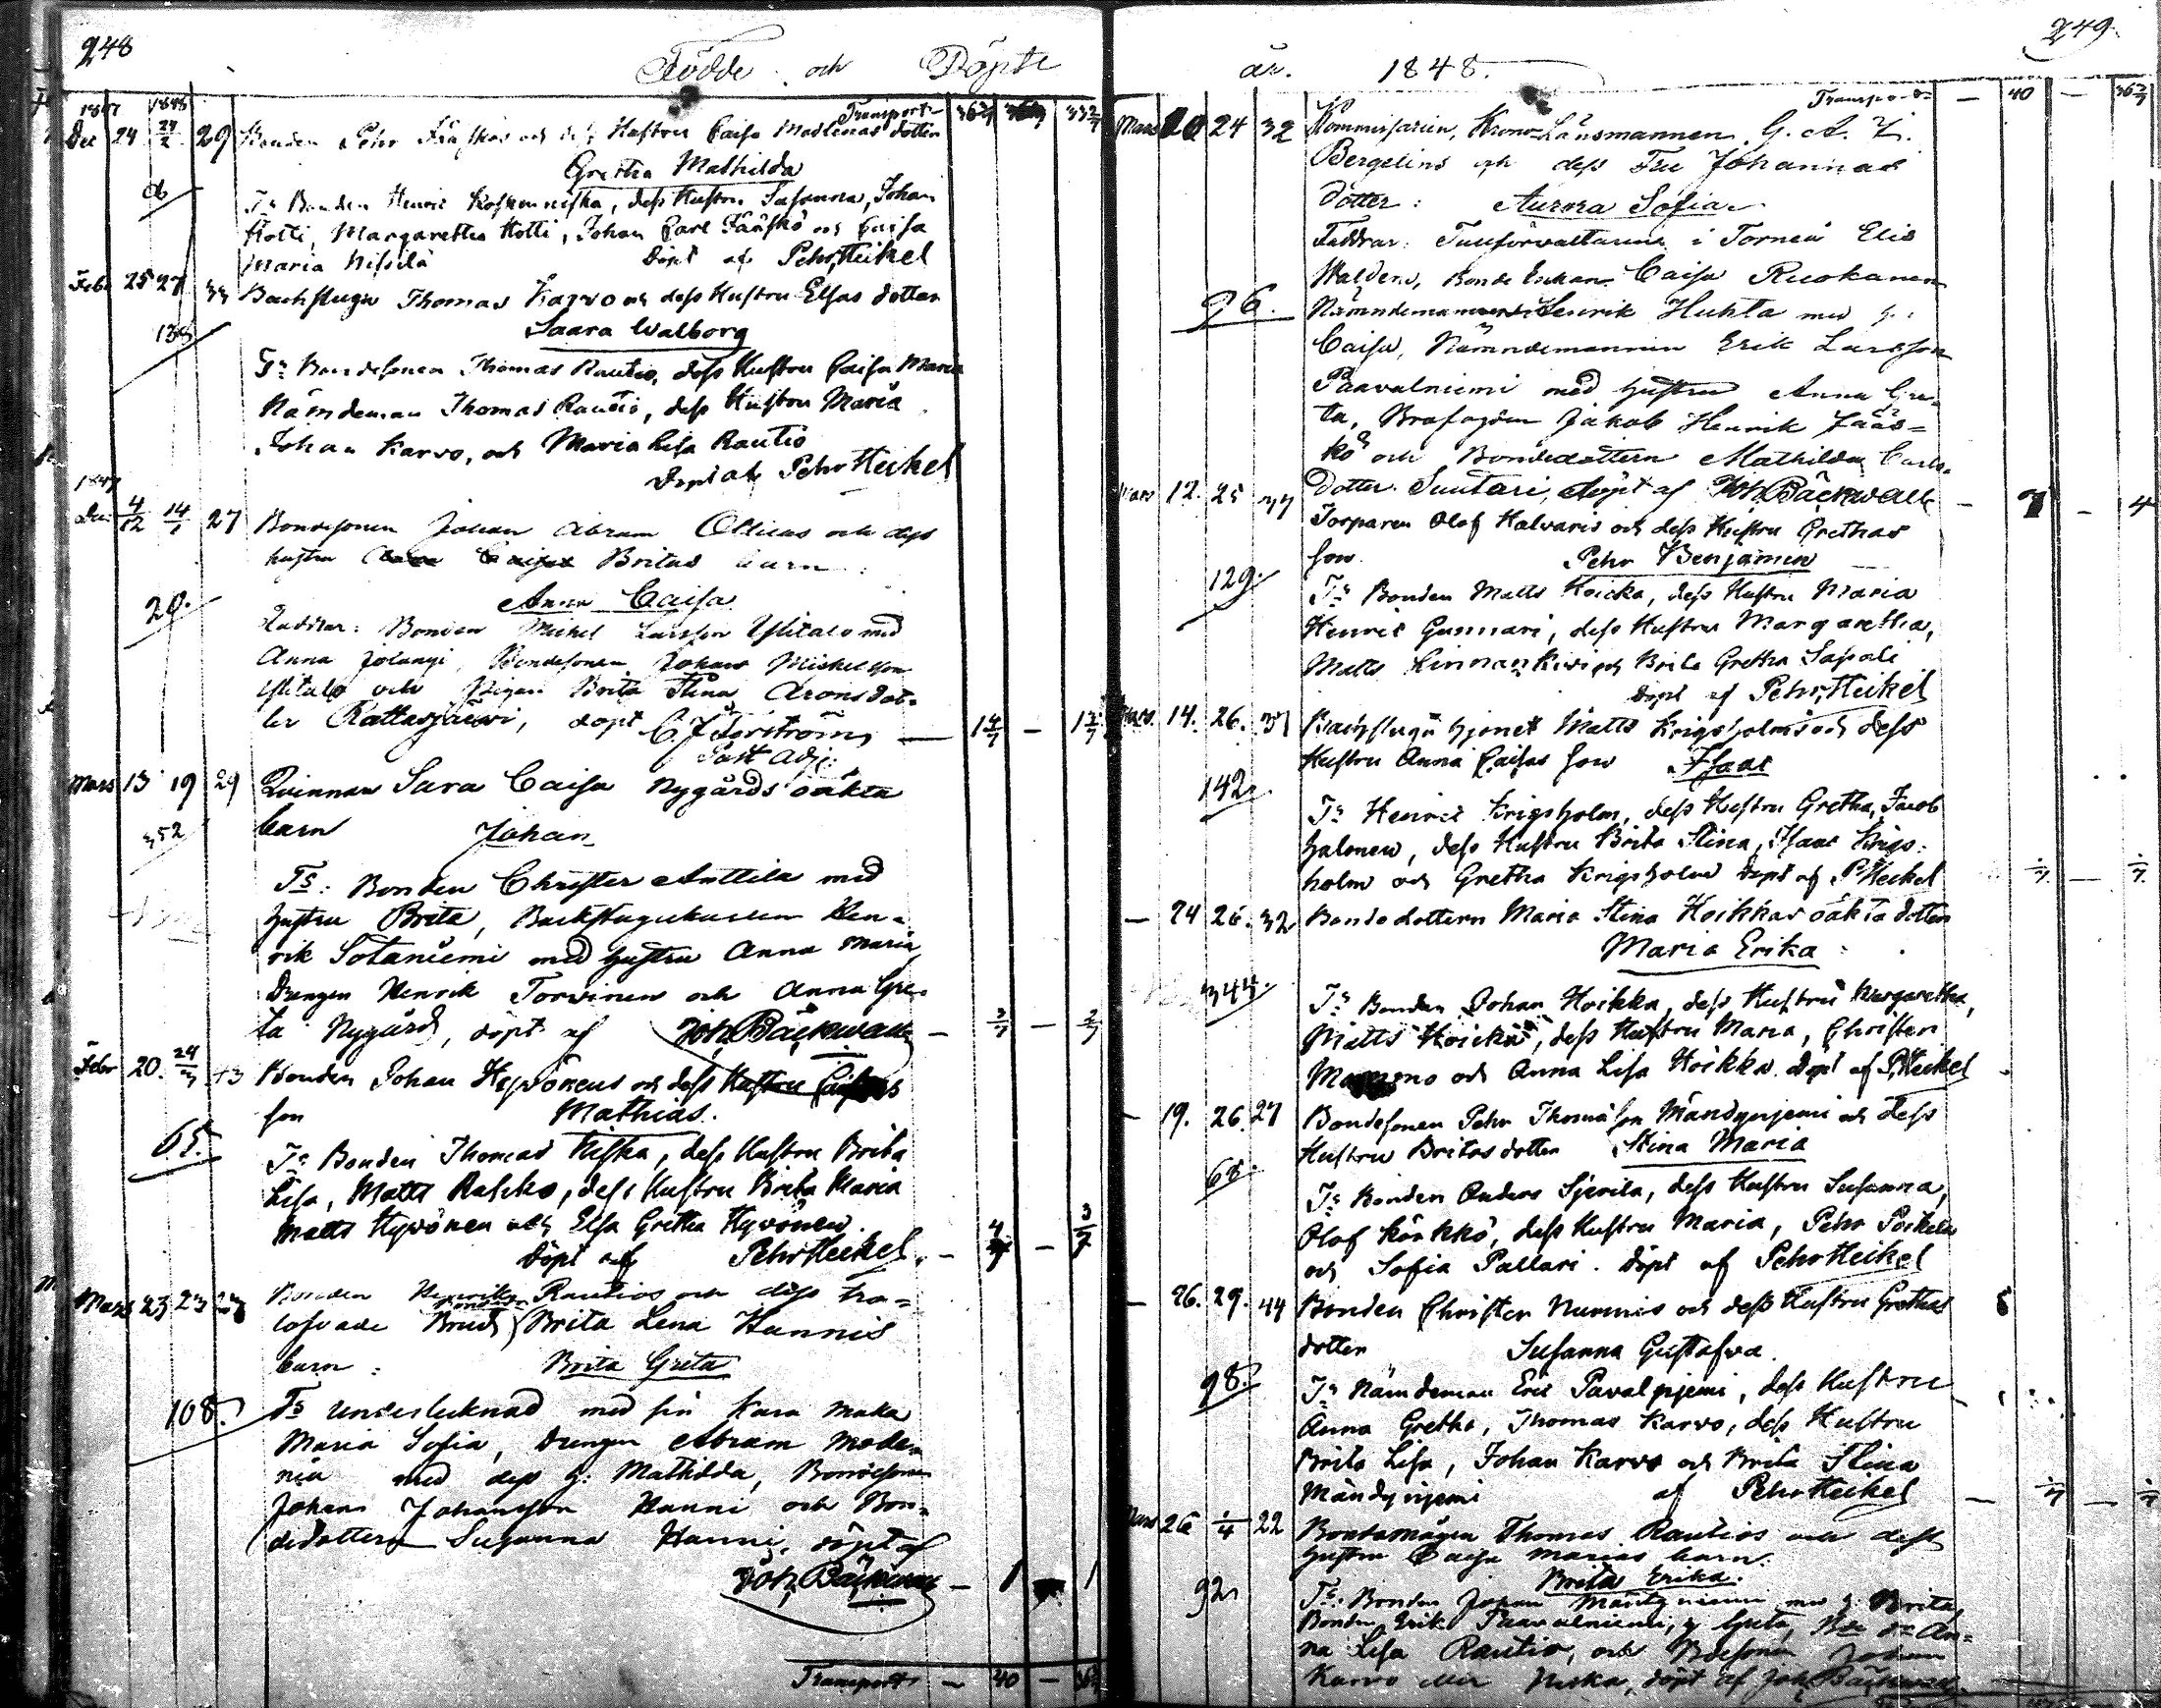 248
Födde och Döpte
1847 1848
Transport 36 2/7 33 2/7
Dec 24 24/2 29 Bonden Pehr Jääskös och dess Hustru Caisa Madlenas dotter
Gretha Mathilda
Fr Bonden Henric Koskenniska, dess Hustru Susanna, Johan
Hotti, Margaretha Hotti, Johan Carl Jääskö och Caisa
Maria Döpt af Pehr Heikel
Febr 25 27 33 Backstugu Thomas Karvo och dess Hustru Elsas dotter
Saara Walborg
138
Fr Bondesonen Thomas Rautio, dess Hustru Caisa Maria
Nämdeman Thomas Rautio, dess Hustru Maria
Johan Karvo, och Maria Lisa Rautio
Döpt af Pehr Heikel
1847
Dec 4/12 14/1 27 Bondesonen Johan Abram Ollilas och dess
hustru Britas barn:
Anna Caisa
20.
Faddrar: Bonden Michel Larsson Ylitalo med
Anna Jolangi, Bondesonen Johan Michelsson
Ylitalo och Pigan Brita Stina Aronsdot-
ter Rattasjärvi, döpt C. J. Forström
Past. Adj.
Mars 13 19 29 Qvinnan Sara Caisa Nygårds oäkta
barn Johan
352
Fr: Bonden Christer Anttila med
hustru Brita, Backstugukarlen Hen-
rik Sotaniemi med hustru Anna Maria
Drengen Henrik Torvinen och Anna Gre-
ta Nygård, döpt af Joh. Bäckwall – 2/7 – 2/7
Febr 20. 24/3 43 Bonden Johan Hyvönens och dess Hustru
son Mathias.
65.
Fr Bonden Thomas Niska, dess Hustru Brita
Lisa, Matts Rasko, dess Hustru Brita Maria
Matts Hyvönen och Elsa Gretha Hyvönen.
Döpt af Pehr Heikel. – 4/7 – 3/7
Mars 23 23 Bonden Henrik Rautios och dess tro-
lofvade Brud Brita Lena Hannis
barn: Brita Greta
108.
Fr Undertecknad med sin kära maka
Maria Sofia, Drengen Abram
med dess h: Mathilda, Bondesonen
Johan Johansson Hanni och Bon-
dedottern Susanna Hanni, döpt af
Joh. Bäckwall – 1 1
Transport – 40 –
249.
år. 1848.
Transport – 40 – 36 2/7
Mars 20 24 32 Kommissarien, Krono-Länsmannen G. A. Z.
Bergelins och dess Fru Johannas
dotter: Aurora Sofia
Faddrar: Tullförvaltaren i Torneå Elis
Walden, Bonde Enkan Caisa Ruokanen
96.
Nämndemannen Henrik Huhta med h:
Caisa, Nämndemannen Erik Larsson
Paavalniemi med hustru Anna Gre-
ta, Jakob Henrik Jääs-
kö och Bondedottern Mathilda Carls-
dotter Suutari, döpt af Joh. Bäckwall
Mars 12. 25 37 Torparen Olof Halvaris och dess Hustru Grethas – – 4
son Pehr Benjamin
129.
Fr Bonden Matts Hoicka, dess Hustru Maria
Henric Gunnari, dess Hustru Margaretha,
Matts Linnankivi och Brita Gretha Sapoli
döpt af Pehr Heikel
Mars 14. 26. 31 Backstugu hjonet Matts Krigsholms och dess
Hustru Anna Caisas son Isaac
142.
Fr Henric Krigsholm, dess Hustru Gretha, Jacob
Halonen, dess Hustru Brita Stina, Isaac Krigs-
holm och Gretha Krigsholm döpt af P Heikel
– 24 26. 32 Bondedottern Maria Stina Hoikkas oäkta dotter
Maria Erika
344.
Fr Bonden Johan Hoikka, dess Hustru Margaretha,
Matts Hoicka, dess Hustru Maria, Christer
och Anna Lisa Hoikka. Döpt af P. Heikel
– 19. 26. 27 Bondesonen Pehr Thomasson Mändyniemi och dess
Hustru Britas dotter Stina Maria
68.
Fr Bonden Anders Sjerila, dess Hustru Susanna,
Olof Körkkö, dess Hustru Maria, Pehr
och Sofia Pallari. Döpt af Pehr Heikel
– 26. 29. 44 Bonden Christer Nurmis och dess Hustru Grethas
dotter Susanna Gustafva.
98.
Fr Nämdeman Eric Pavalniemi, dess Hustru
Anna Gretha, Thomas Karvo, dess Hustru
Brita Lisa, Johan Karvo och Brita Stina
Mändyniemi af Pehr Heikel
Mars 26 1/4 22 Bondemågen Thomas Rautios och dess
hustru Caisa Marias barn.
Brita Erika.
92
Fr: Bonden Johan Mäntyniemi med h. Brita,
Bonden Erik Paavalniemi, h Greta, An-
na Lisa Rautio, och Bdesonen Johan
Karvo eller Niska, döpt af Joh. Bäckwall